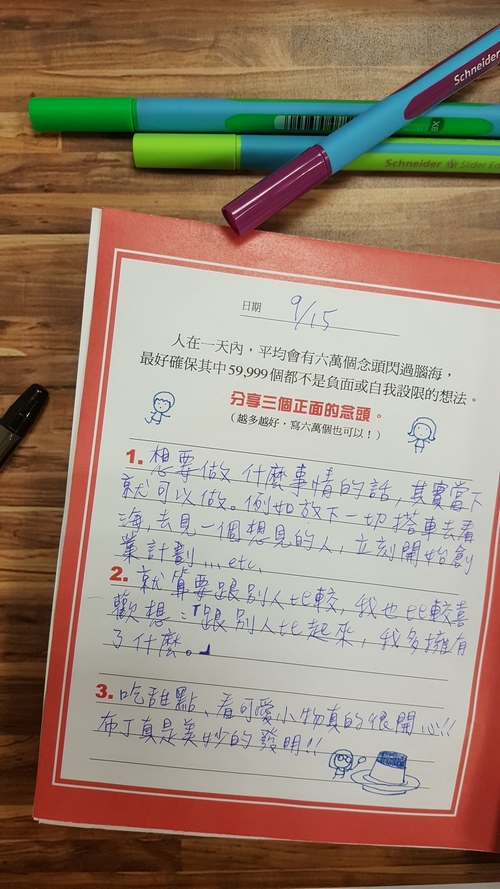 Schneider
XB
Schneider Slider Ed
日期 9/15
人在一天內，平均會有六萬個念頭閃過腦海，
最好確保其中59,999個都不是負面或自我設限的想法。
分享三個正面的念頭。
（越多越好，寫六萬個也可以！）
1. 想要做什麼事情的話，其實當下
就可以做。例如放下一切搭車去看
海，去見一個想見的人，立刻開始創
業計劃...etc.
2. 就算要跟別人比較，我也比較喜
歡想：「跟別人比起來，我多擁有
了什麼。」
3. 吃甜點、看可愛小物真的很開心!!
布丁真是美妙的發明!!